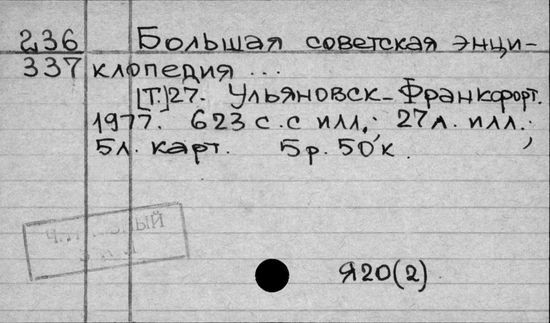 236 Большая советская энци-
337 клопедия ...
[Т.]27. Ульяновск-Франкфорт.
1977. 623 с. с илл.; 27л. илл.;
5л. карт. 5р. 50к.
Я20(2)